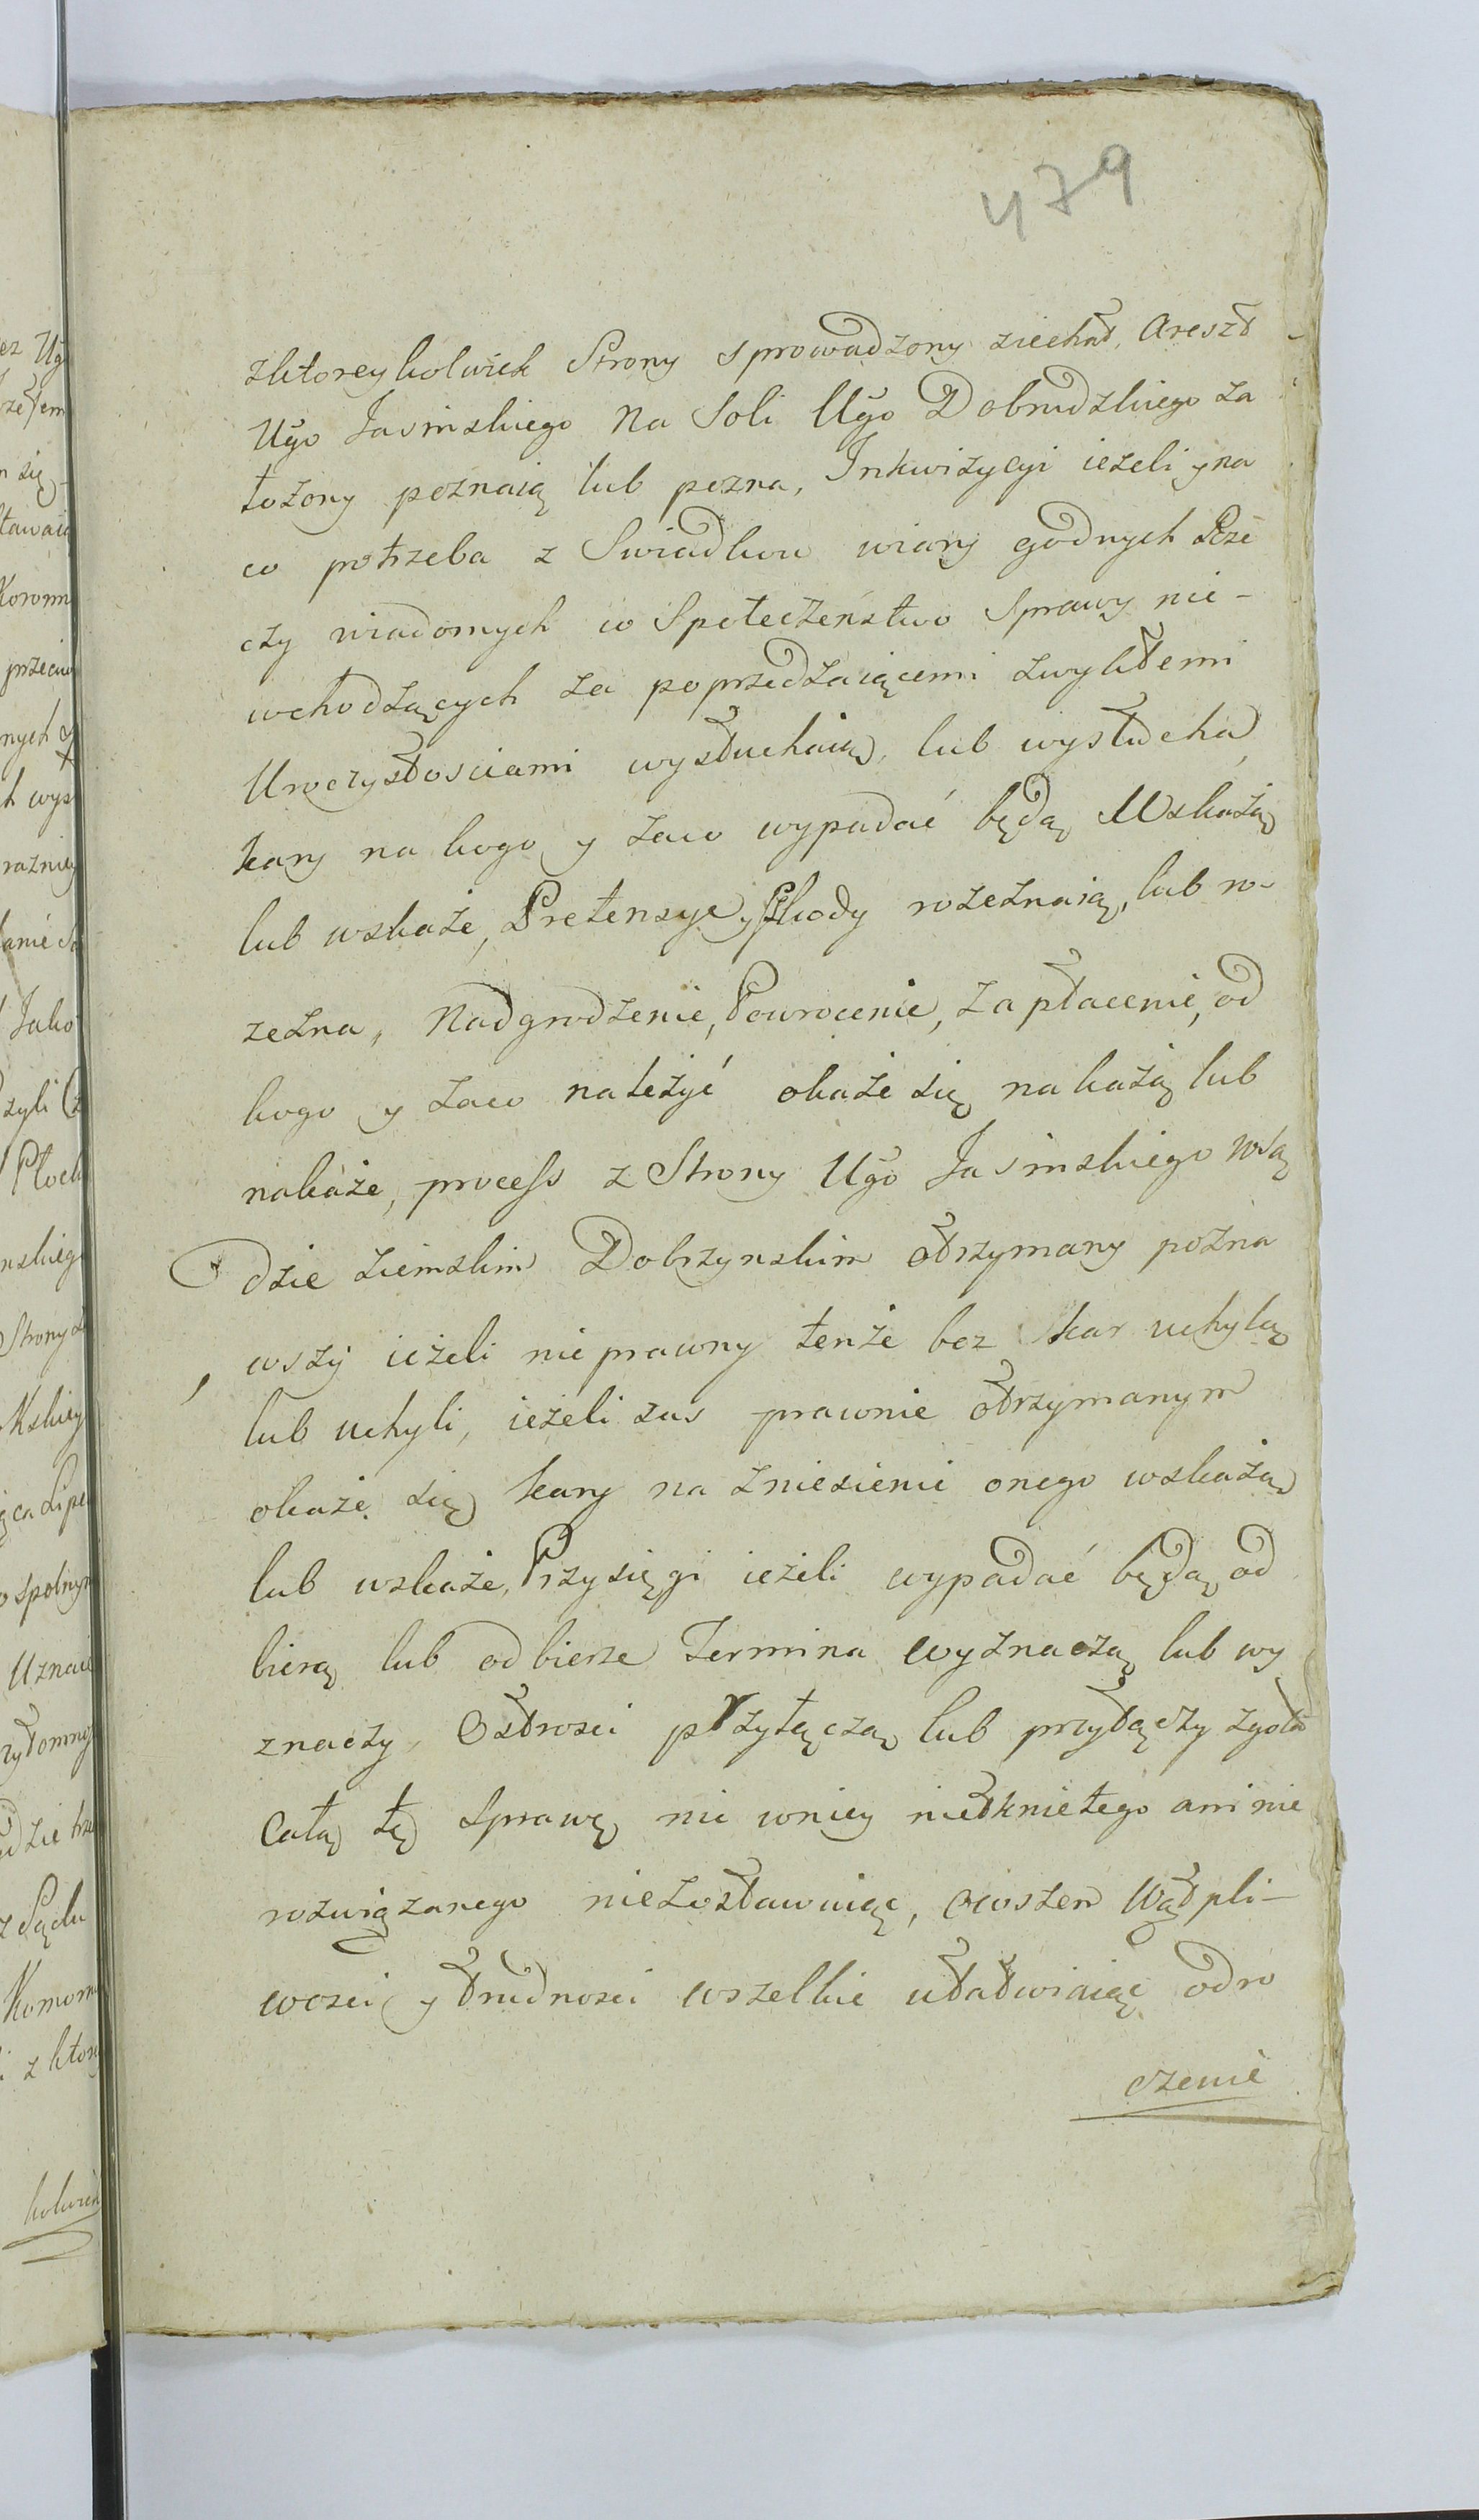 479
zktoreykolwiek Strony sprowadzony ziechał, Areszt
Ugo Jasinskiego Na Soli Ugo Dobrudzkiego za
łożony poznaią lub pozna, Inkwizycyi ieżeli y na
co potrzeba z Swiadkow wiary godnych Rze
czy wiadomych w Społeczeństwo Sprawy nie-
wchodzących za poprzedzaiącemi zwykłemi
Uroczystosciami wysłuchaią, lub wysłucha,
kary na kogo y zaco wypadać będą Wskażą
lub wskaże, Pretensye y Szkody rozeznaią, lub ro-
zezna, Nadgrodzenie, Powrocenie, zapłacenie, od
kogo y zaco należyć okaże się nakażą lub
nakaże, process z Strony Ugo Jasinskiego wSą
dzie ziemskim Dobrzynskim otrzymany pozna
wszy ieżeli nieprawny tenże bez kar uchylą
lub uchyli, ieżeli zas prawnie otrzymanym
okaże się kary na zniesienie onego wskażą
lub wskaże, Przysięgi ieżeli wypadać będą od
biorą lub odbierze Termina wyznaczą lub wy
znaczy, Ostrosci przyłączą lub przyłączy zgoła
Całą tę Sprawę nic wniey nietknietego ani nie
rozwiązanego niezostawuiąc, owszem Wątpli-
wosci y trudnosci wszelkie ułatwiaiąc odro
czenie